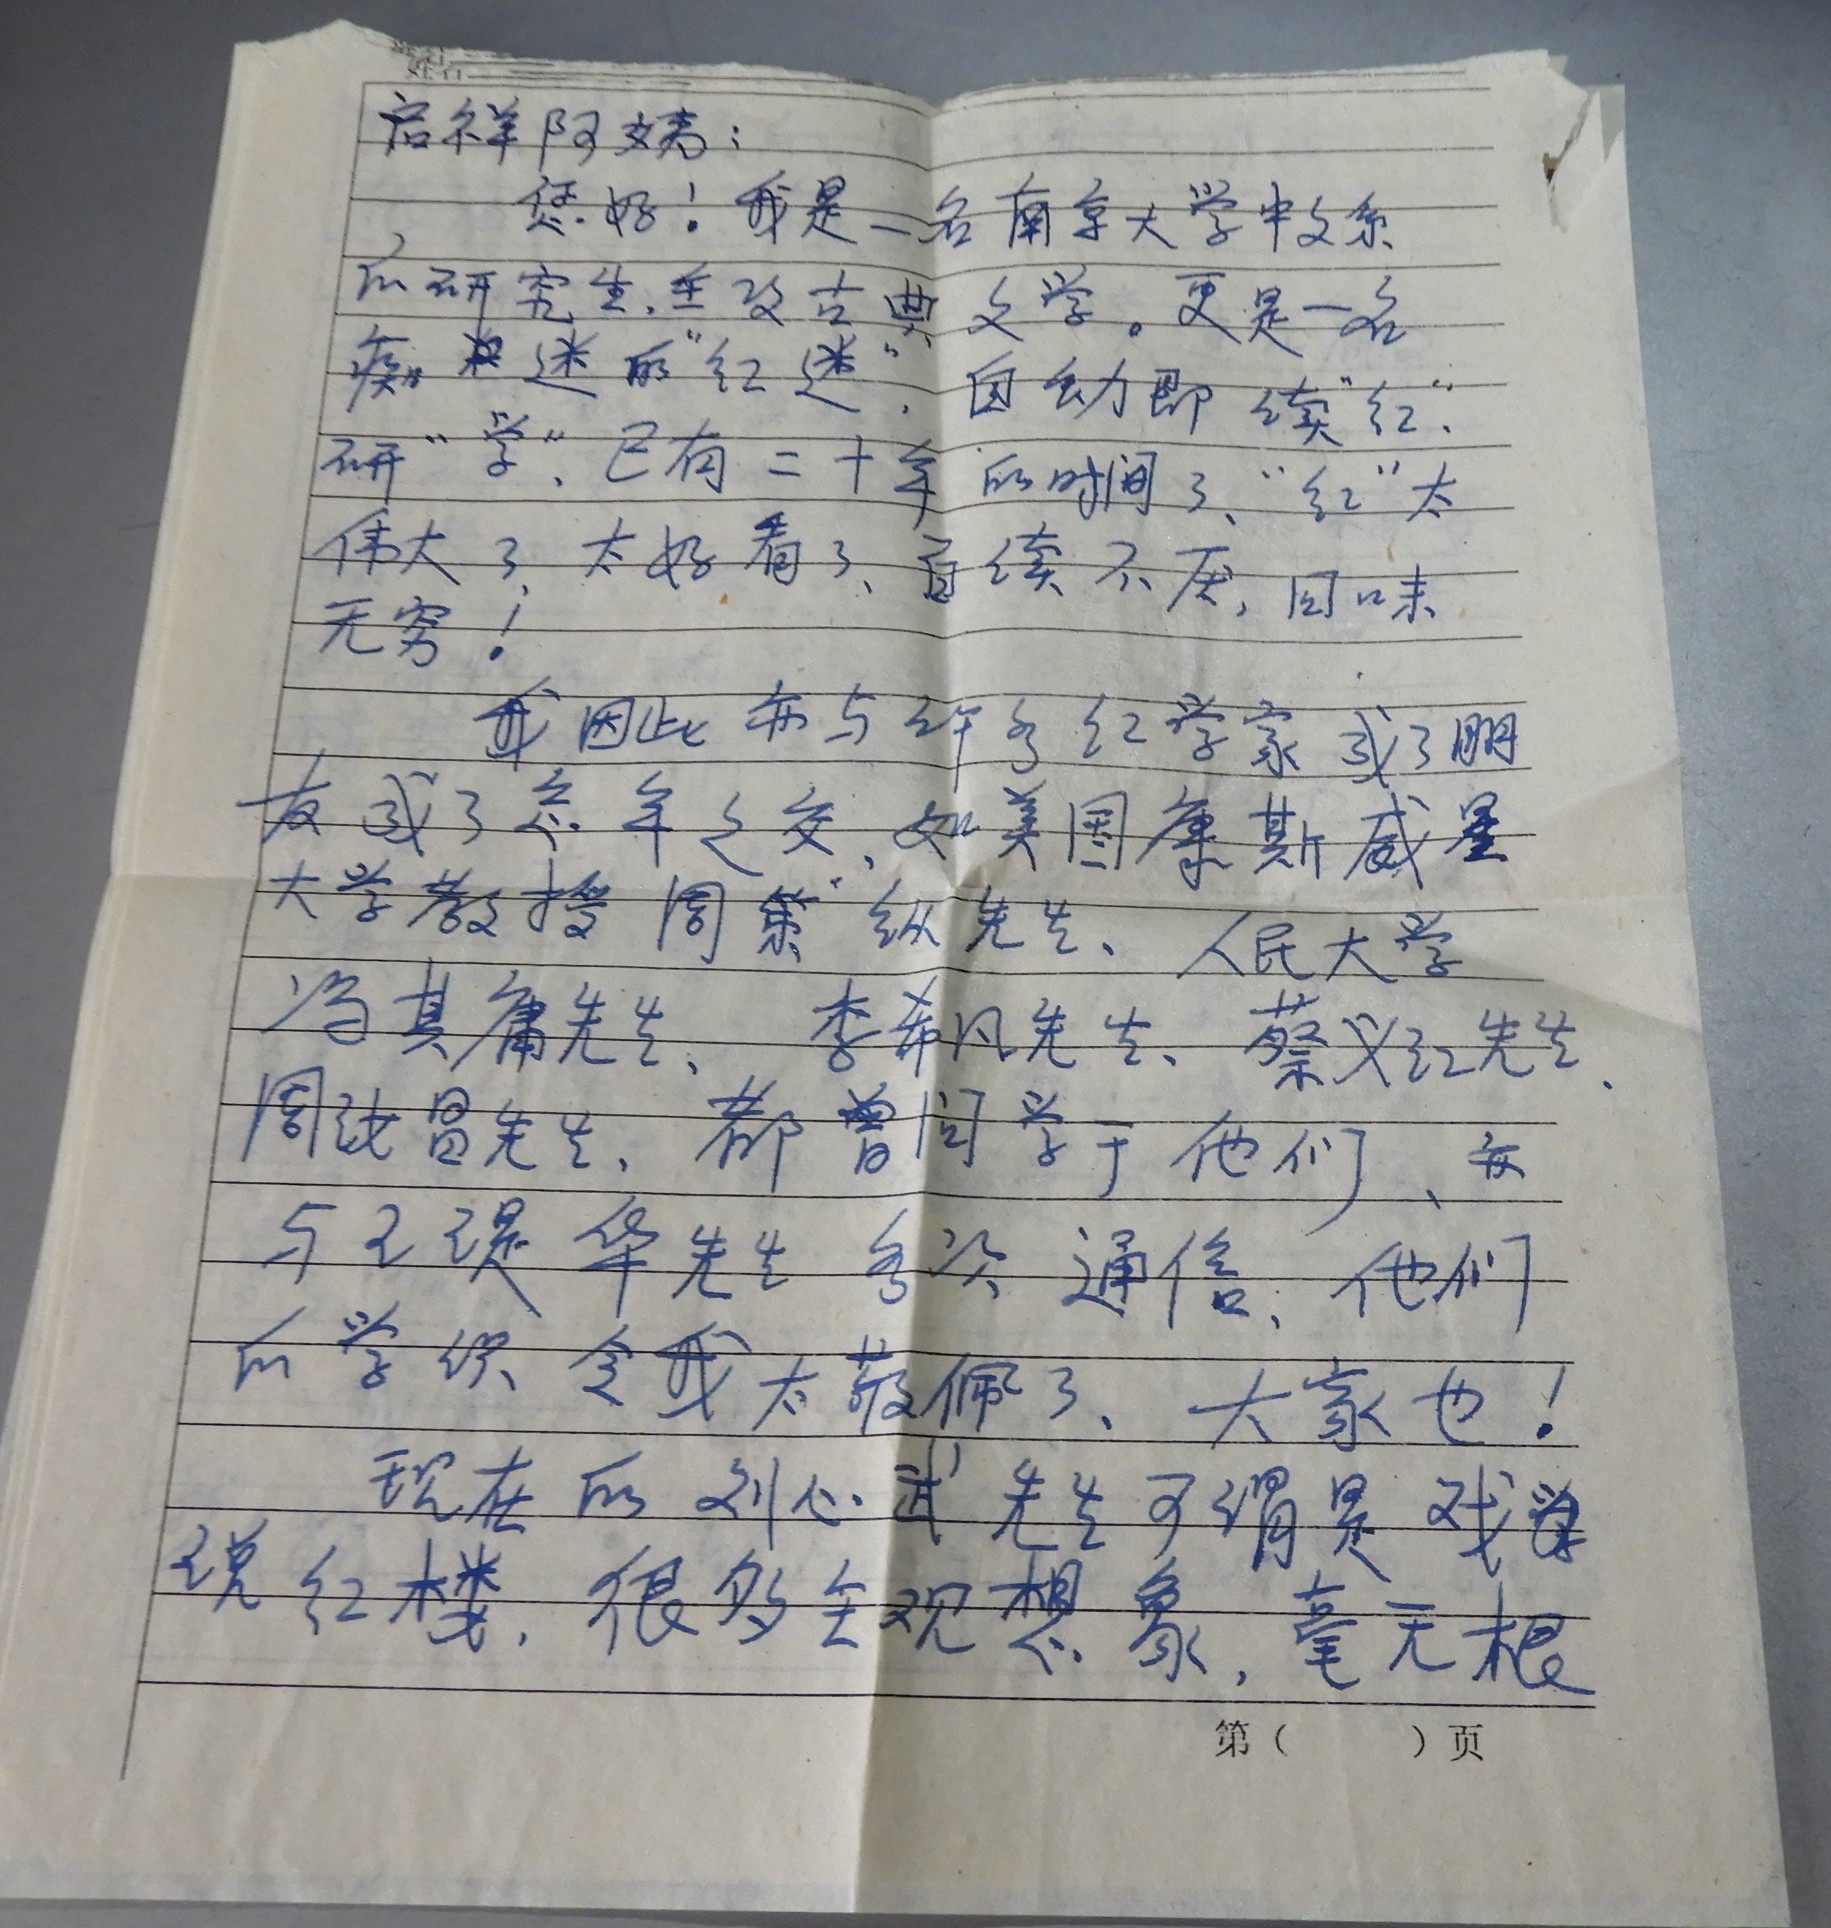 姓名
启祥阿姨：
您好！我是一名南京大学中文系
的研究生，主攻古典文学。更是一名
痴迷的“红迷”，自幼即读“红”
研“学”，已有二十年的时间了、“红”太
伟大了，太好看了、百读不厌，回味
无穷！
我因此而与许多红学家成了朋
友成了忘年之交，如美国康斯威星
大学教授周策纵先生、人民大学
冯其庸先生、李希凡先生、蔡义江先生、
周汝昌先生，都曾问学于他们、亦
与王湜华先生多次通信、他们
的学识令我太敬佩了、大家也！
现在的刘心武先生可谓是戏
说红楼，很多主观想象，毫无根
第（ ）页